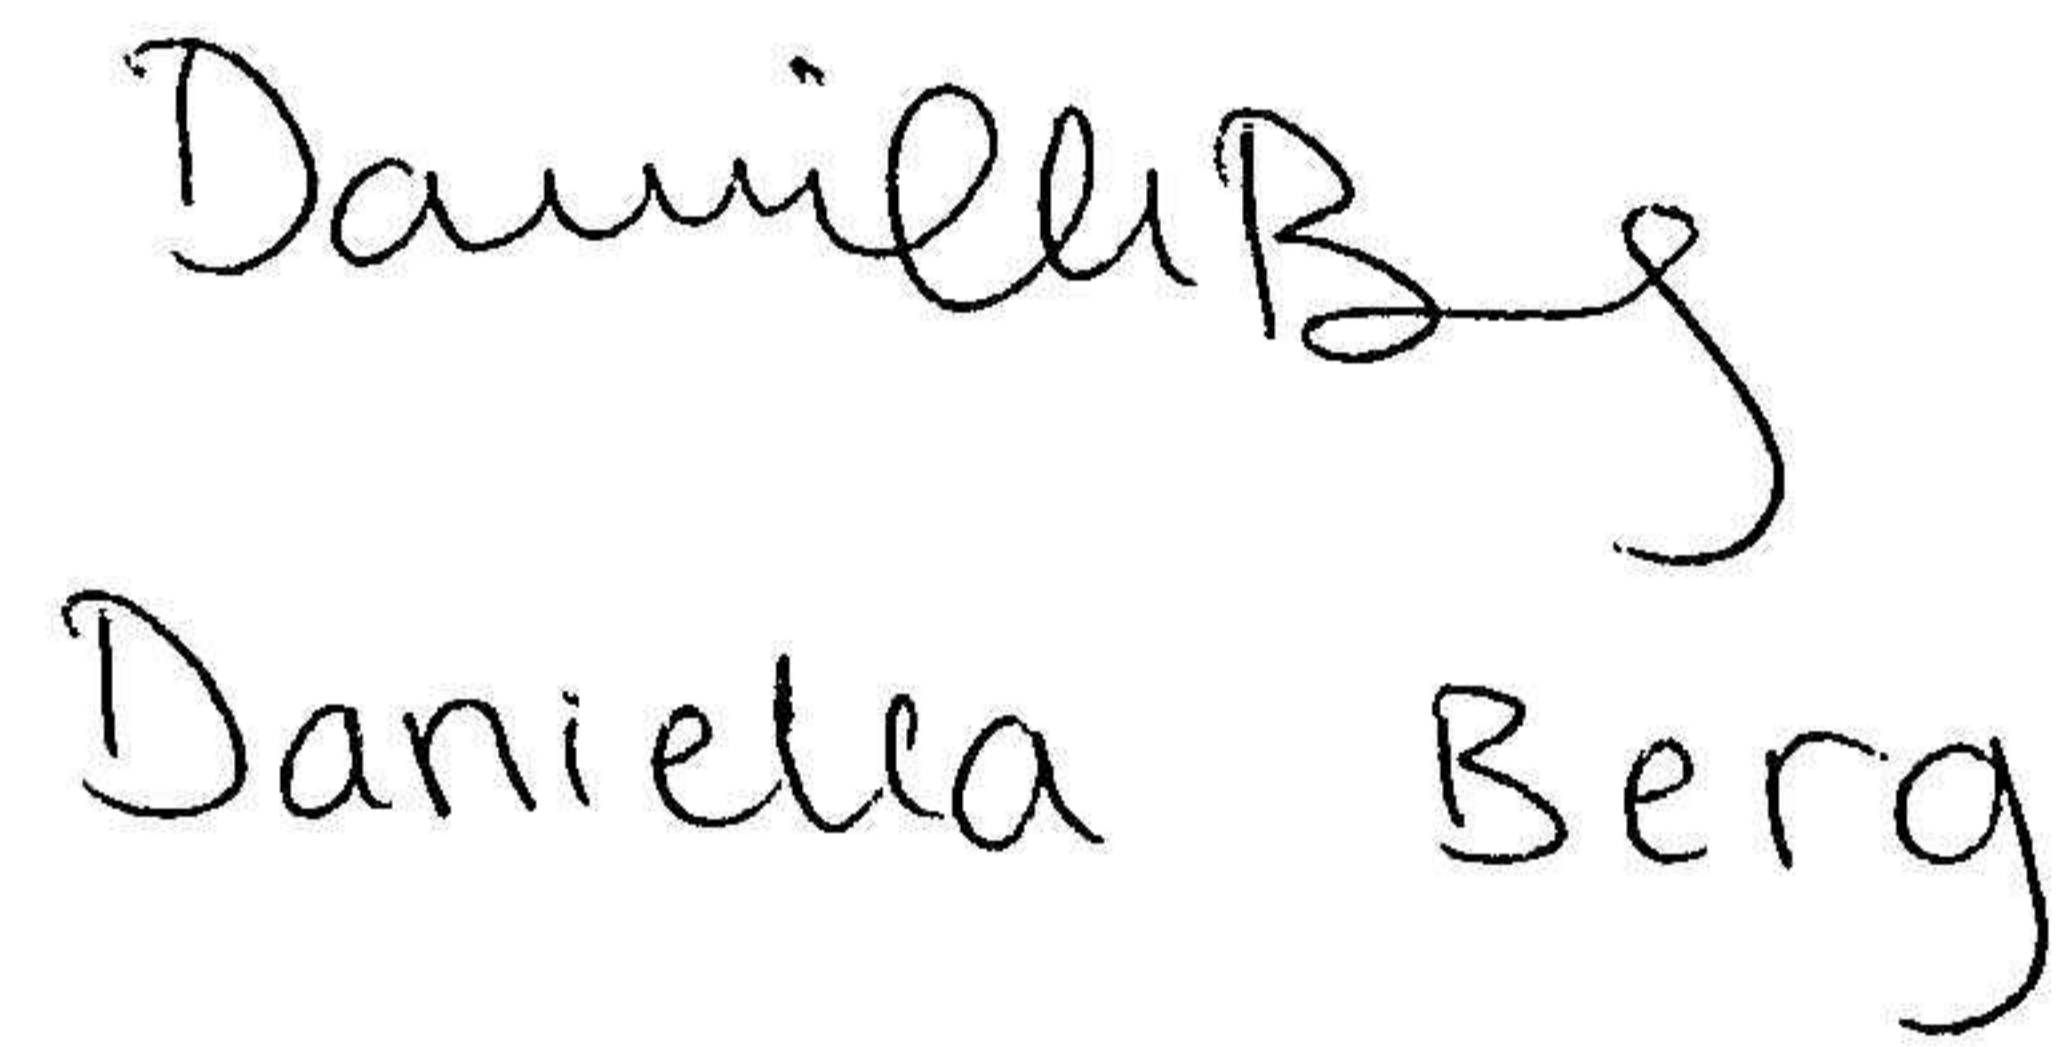 Daniella Berg
Daniella Berg